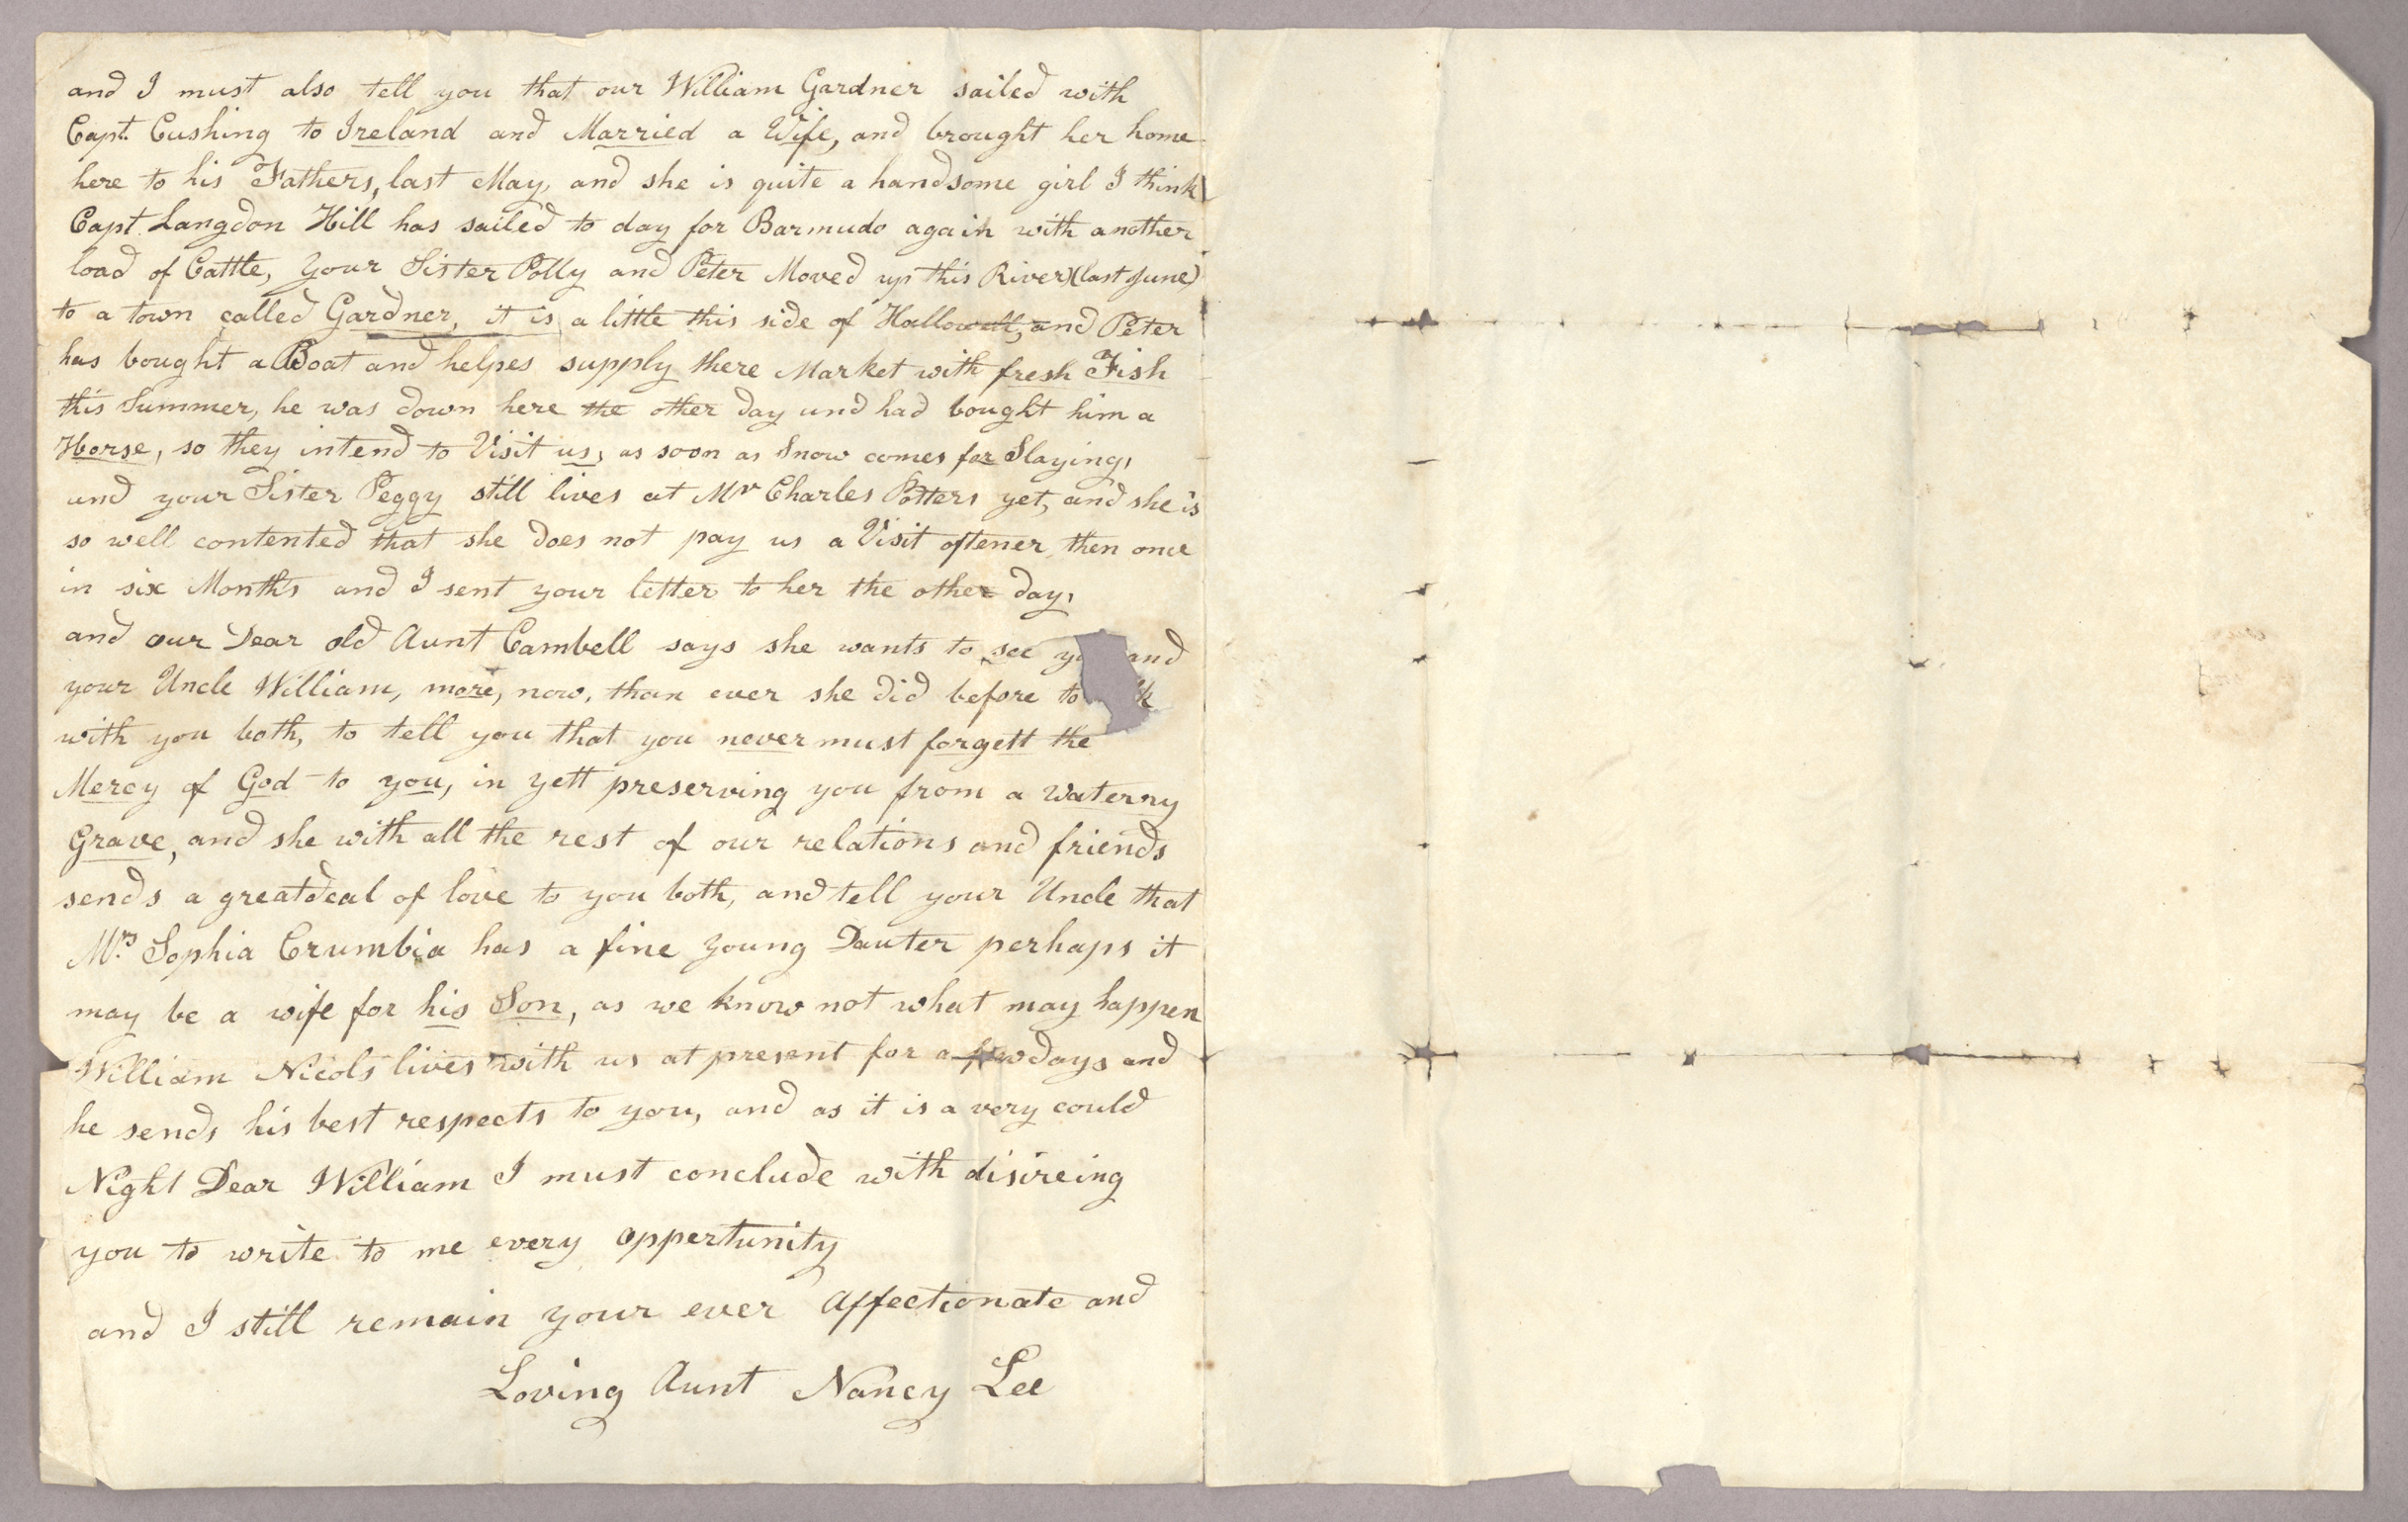 and I must also tell you that our William Gardner sailed with
Capt. Cushing to Ireland and Married a Wife, and brought her home
here to his Fathers, last May, and she is quite a handsome girl I think
Capt. Langdon Hill has sailed to day for Barmudo again with another
load of Cattle, Your Sister Polly and Peter Moved up this River (last June)
to a town called Gardner, it is a little this side of Hallowell, and Peter
has bought a Boat and helpes supply there Market with fresh Fish
this Summer, he was down here the other day and had bought him a
Horse, so they intend to Visit us, as soon as Snow comes for Slaying,
and your Sister Peggy still lives at Mr Charles Potters yet, and she is
so well contented that she does not pay us a Visit oftener then once
in six Months and I sent your letter to her the other day,
and our Dear old Aunt Cambell says she wants to see and
your Uncle William, more, now, than ever she did before to
with you both, to tell you that you never must forgett the
Mercy of God to you, in yett preserving you from a Waterny
Grave, and she with all the rest of our relations and friends
sends a greatdeal of love to you both, and tell your Uncle that
Mrs Sophia Crumbia has a fine young Dauter perhaps it
may be a wife for his Son, as we know not what may happen
William Nicols lives with us at present for a few days and
he sends his best respects to you, and as it is a very could
Night Dear William I must conclude with disireing
you to write to me every oppertunity
and I still remain your ever Affectionate and
Loving Aunt Nancy Lee